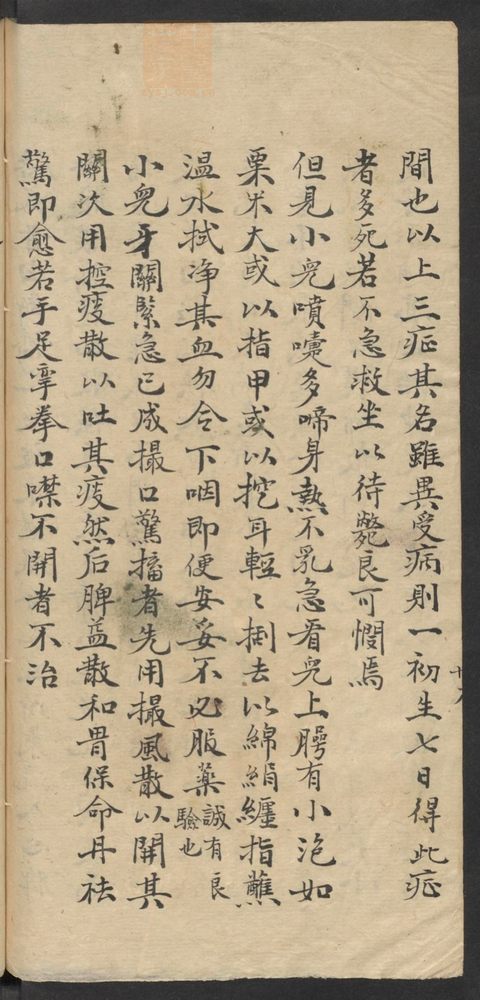 間也以上三症其名雖異受病則一初生七日得此症
者多死若不急救坐以待斃良可憫焉
但見小兒噴嚏多啼身熱不乳急看兒上腭有小泡如
粟米大或以指甲或以挖耳輕〻掏去以綿絹纏指蘸
温水拭净其血勿令下咽即便安妥不必服藥誠有良驗也
小兒牙關緊急已成撮口驚搐者先用撮風散以開其
關次用控痰散以吐其痰然后脾益散和胃保命丹祛
驚即愈若手足挛拳口噤不開者不治